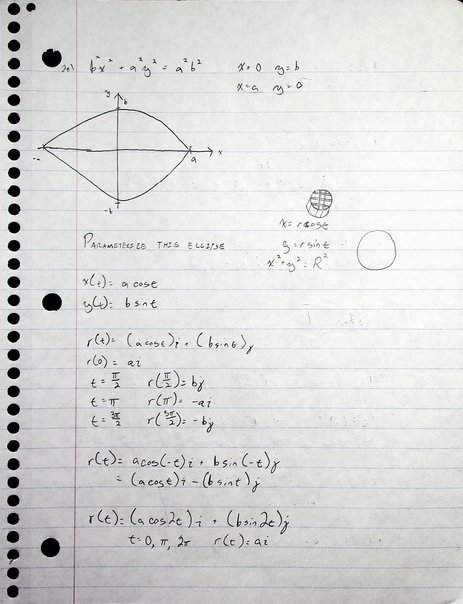 b²x² + a²y² = a²b²
x=0 y=b
x=a y=0
y
b
a
x
-b
PARAMETERIZE THIS ELLIPSE
x = r cos t
y = r sin t
x² + y² = R²
x(t) = a cos t
y(t) = b sin t
r(t) = (a cos t)i + (b sin t)j
r(0) = ai
t = π/2 r(π/2) = bj
t = π r(π) = -ai
t = 3π/2 r(3π/2) = -bj
r(t) = a cos(-t)i + b sin(-t)j
= (a cos t)i - (b sin t)j
r(t) = (a cos 2t)i + (b sin 2t)j
t = 0, π, 2π r(t) = ai